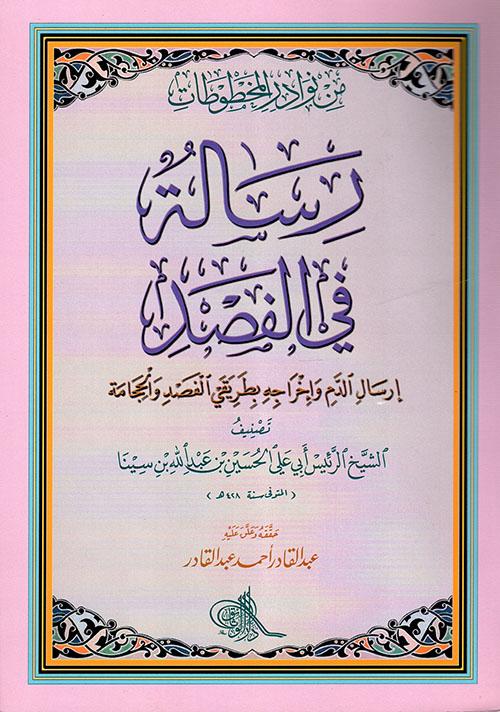 مِن نَوَادِرِ المَخْطُوطَاتِ
رِسَالَةُ
فِي الفَصْدِ
إرسَالِ الدَّمِ وَإخْرَاجِهِ بِطَرِيقَيِ الفَصْدِ وَالْحِجَامَة
تَصْنِيفُ
الشَّيخ الرَّئيس أبي عَلي الحُسَيْن بن عَبْدِ اللَّهِ بن سِينَا
( المتوفى سنة ٤٢٨ هـ )
حَقَّقَهُ وَعَلَّقَ عَلَيْهِ
عبد القادر أحمد عبد القادر